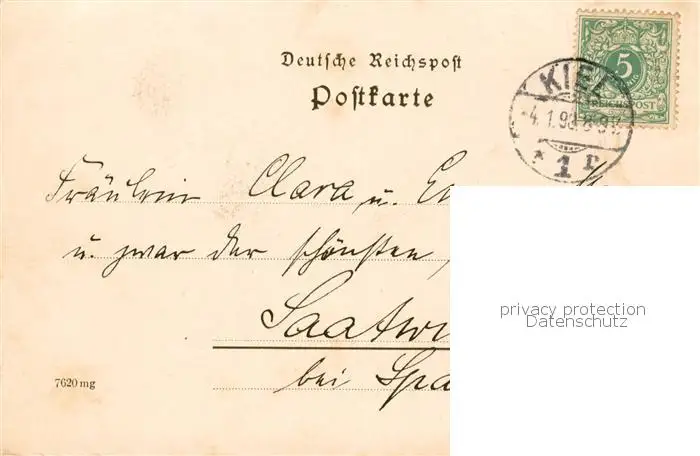 Deutsche Reichspost
Postkarte
5
REICHSPOST
KIEL
4.1.98. 8-9 V.
* 1 D
Fräulein Clara u.
u. zwar der schönsten,
bei
7620 mg
privacy protection
Datenschutz